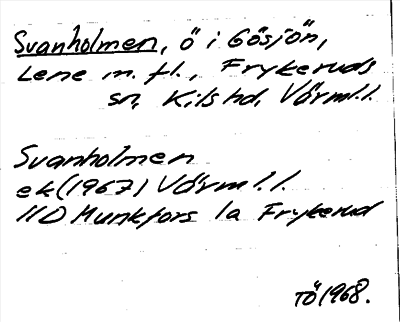 Svanholmen, ö i Gösjön,
Lene m. fl., Frykeruds
sn, Kils hd, Värml.l.
Svanholmen
ek (1967) Värml.l.
11D Munkfors 1a Frykerud
TÖ 1968.